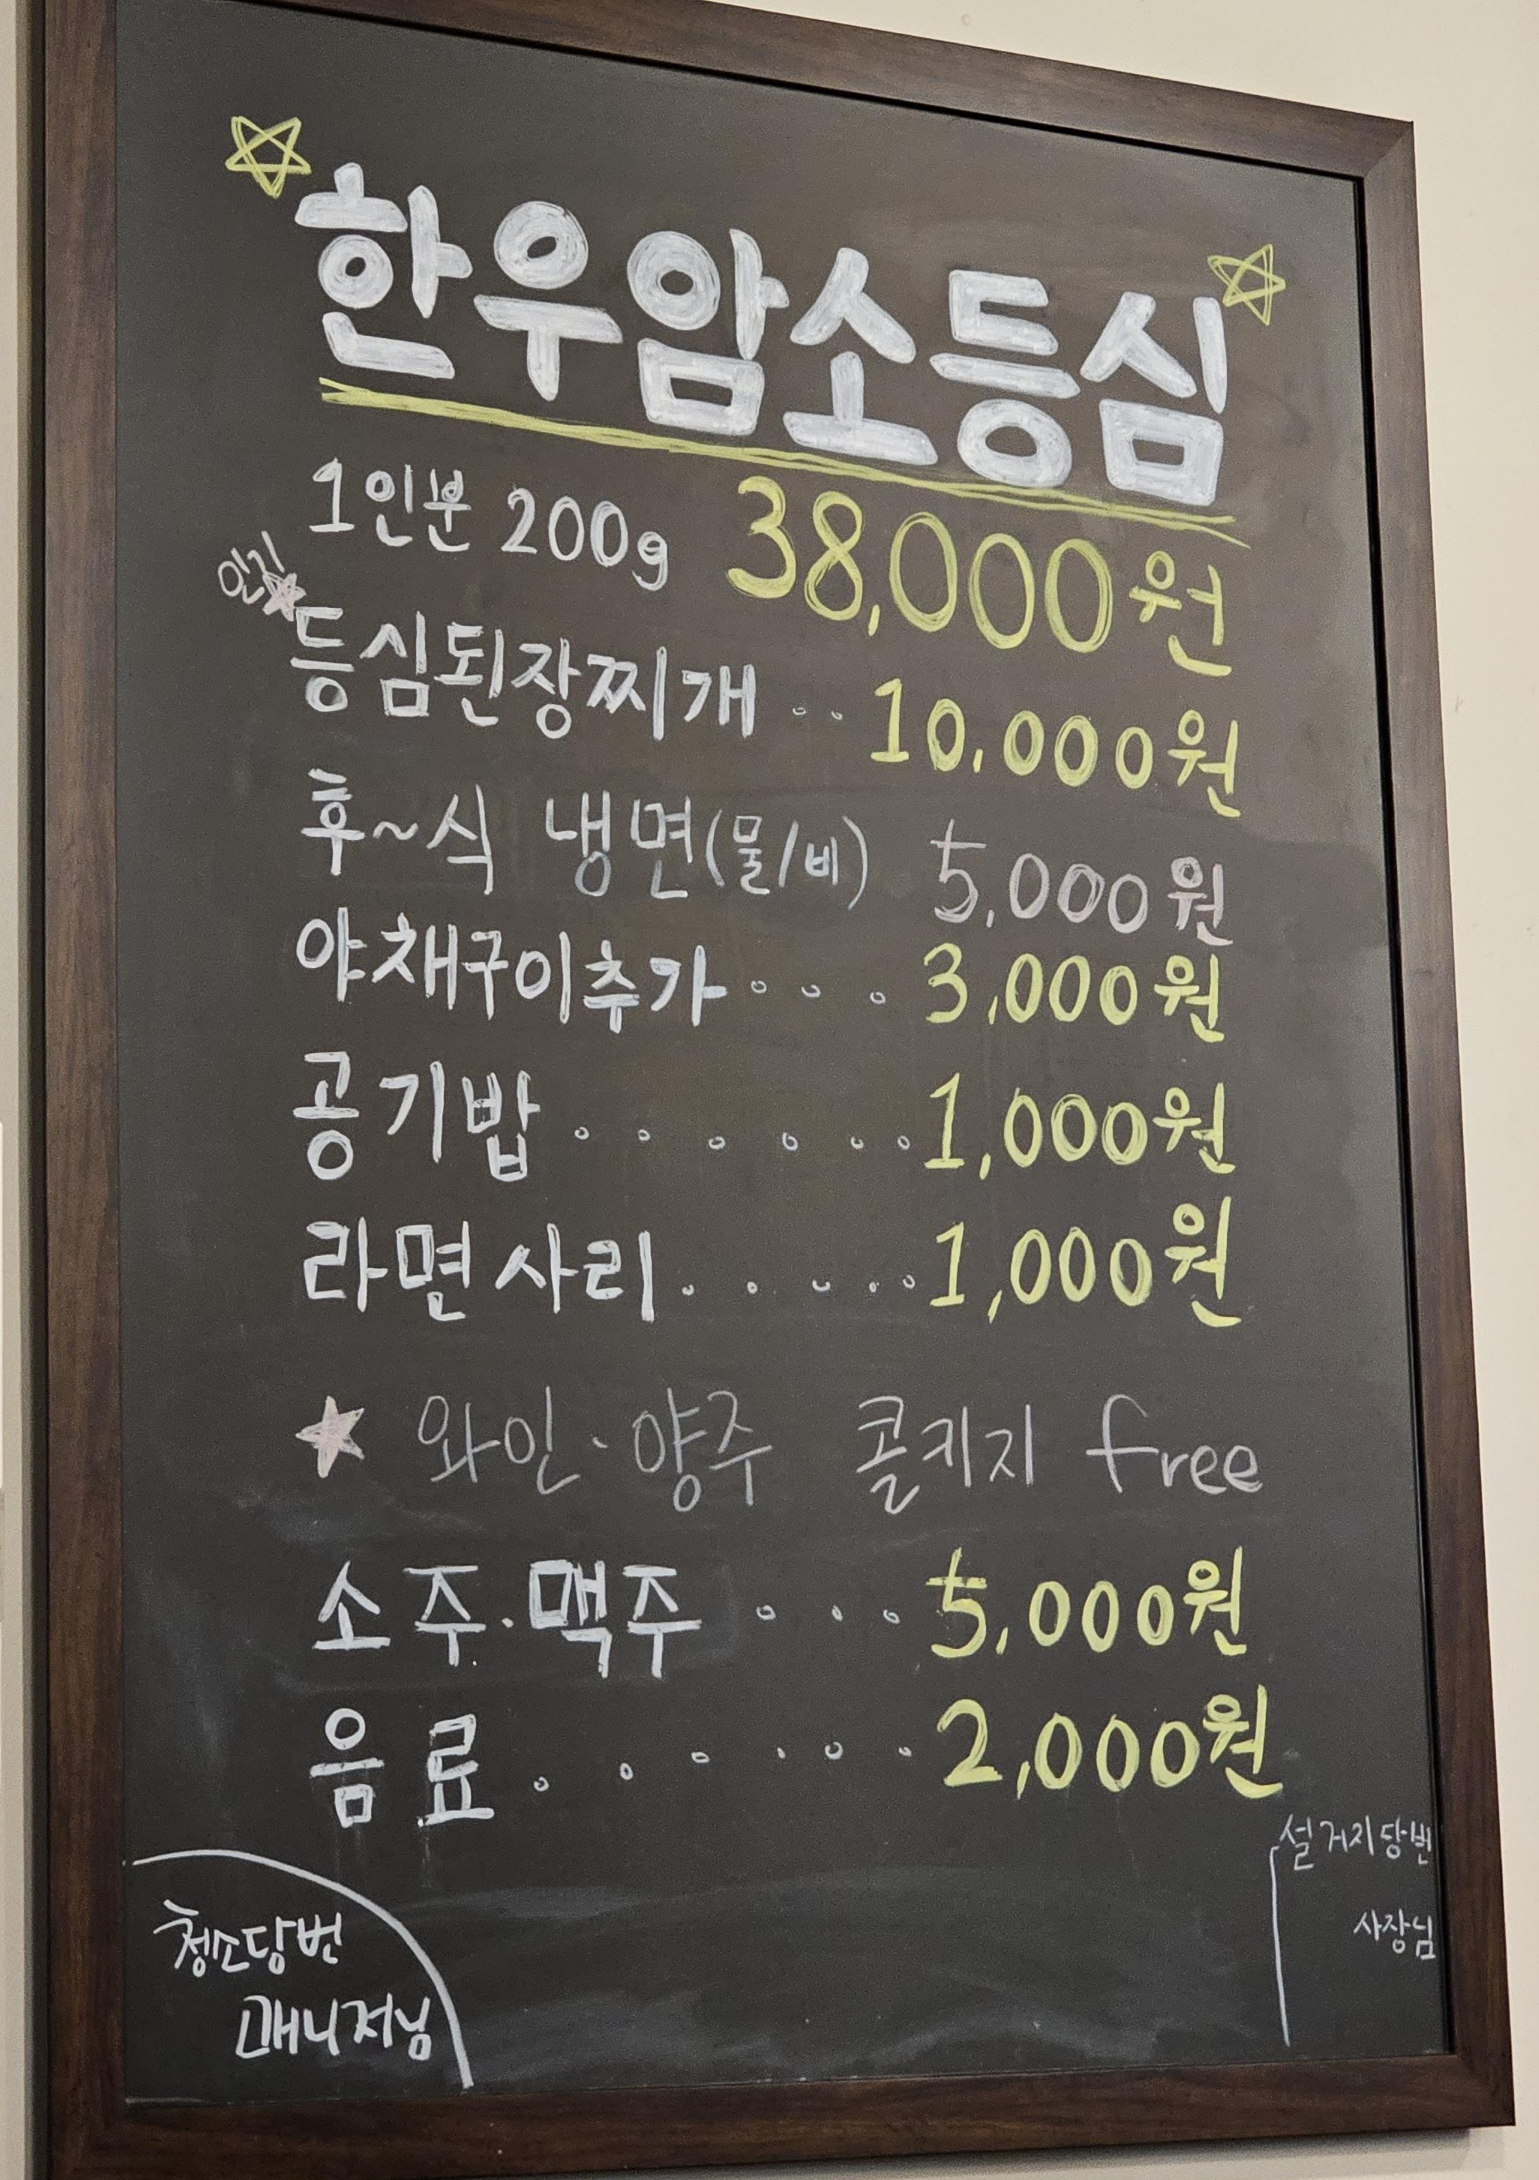 한우암소등심
1인분 200g 38,000원
인기
등심된장찌개 .. 10,000원
후~식 냉면(물/비) 5,000원
야채구이추가 ... 3,000원
공기밥 ...... 1,000원
라면사리 ..... 1,000원
★ 와인·양주 콜키지 free
소주·맥주 ... 5,000원
음료 ...... 2,000원
설거지당번
사장님
청소당번
매니저님